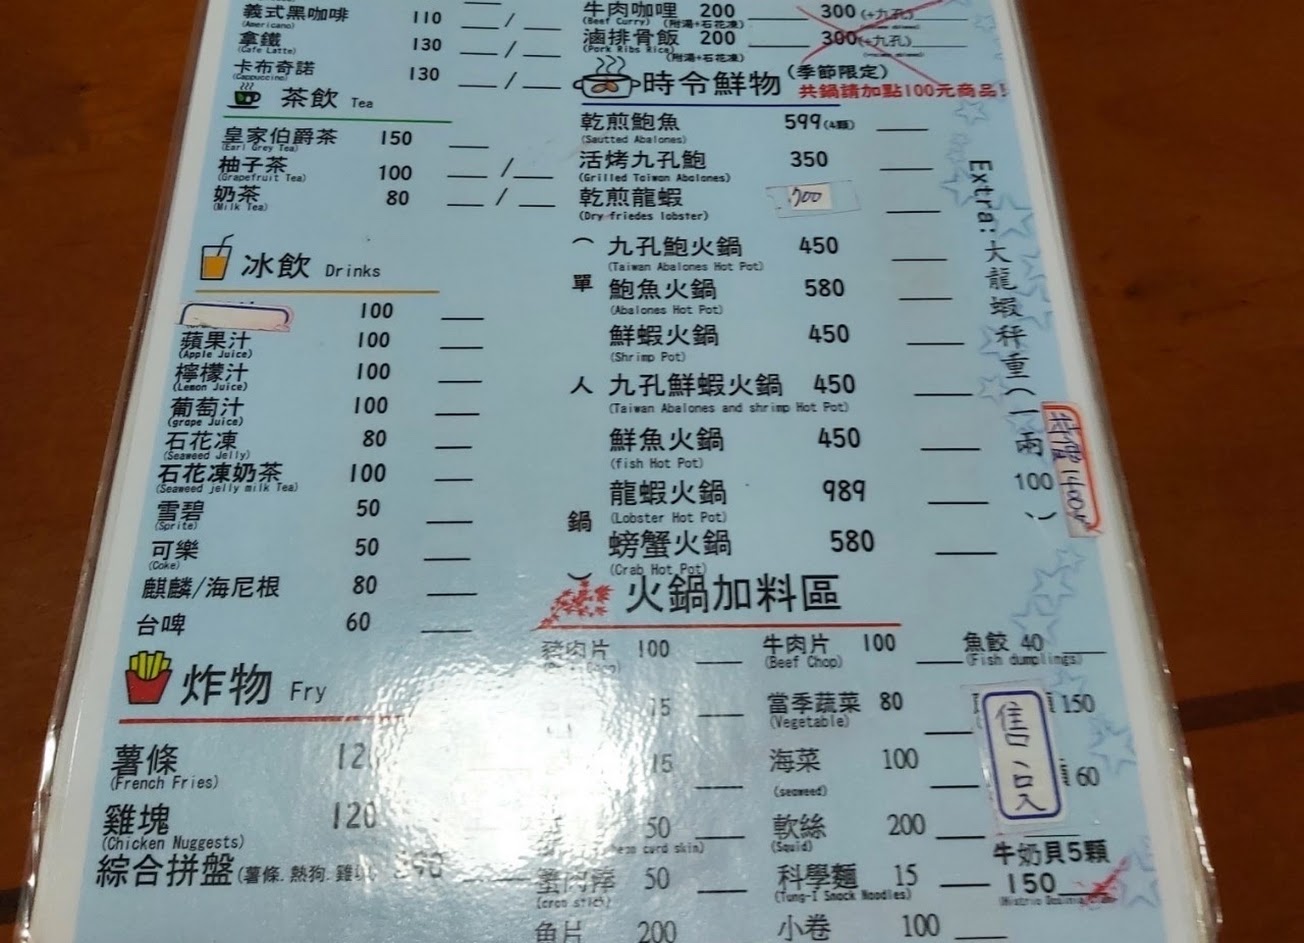 義式黑咖啡 110 ___/___
(Americano)
拿鐵 130 ___/___
(Cafe Latte)
卡布奇諾 130 ___/___
(Cappuccino)
茶飲 Tea
皇家伯爵茶 150 ___
(Earl Grey Tea)
柚子茶 100 ___/___
(Grapefruit Tea)
奶茶 80 ___/___
(Milk Tea)
冰飲 Drinks
100 ___
蘋果汁 100 ___
(Apple Juice)
檸檬汁 100 ___
(Lemon Juice)
葡萄汁 100 ___
(grape Juice)
石花凍 80 ___
(Seaweed Jelly)
石花凍奶茶 100 ___
(Seaweed jelly milk Tea)
雪碧 50 ___
(Sprite)
可樂 50 ___
(Coke)
麒麟/海尼根 80 ___
台啤 60 ___
炸物 Fry
薯條
(French Fries)
雞塊 120
(Chicken Nuggets)
綜合拼盤(薯條.熱狗.雞
牛肉咖哩 200 ___ 300(+九孔)
(Beef Curry) (附湯+石花凍)
滷排骨飯 200 ___ 300(+九孔)
(Pork Ribs Rice) (附湯+石花凍)
時令鮮物(季節限定)
共鍋請加點100元商品!
乾煎鮑魚 599(4顆) ___
(Sautted Abalones)
活烤九孔鮑 350
(Grilled Taiwan Abalones)
乾煎龍蝦 700 ___
(Dry friedes lobster)
(單人鍋)
九孔鮑火鍋 450 ___
(Taiwan Abalones Hot Pot)
鮑魚火鍋 580 ___
(Abalones Hot Pot)
鮮蝦火鍋 450 ___
(Shrimp Pot)
九孔鮮蝦火鍋 450 ___
(Taiwan Abalones and shrimp Hot Pot)
鮮魚火鍋 450 ___
(fish Hot Pot)
龍蝦火鍋 989 ___
(Lobster Hot Pot)
螃蟹火鍋 580 ___
(Crab Hot Pot)
Extra:大龍蝦秤重(一兩100)
火鍋加料區
豬肉片 100 ___ 牛肉片 100 ___ 魚餃 40 ___
(Beef Chop) (Fish dumplings)
15 ___ 當季蔬菜 80 ___ 150
(Vegetable)
15 ___ 海菜 100 ___ 60
(seaweed)
售完
50 ___ 軟絲 200 ___
(Squid)
牛奶貝5顆
蟹肉棒 50 ___ 科學麵 15 ___ 150 ___
(Tung-I Snack Noodles)
魚片 200 小卷 100 ___